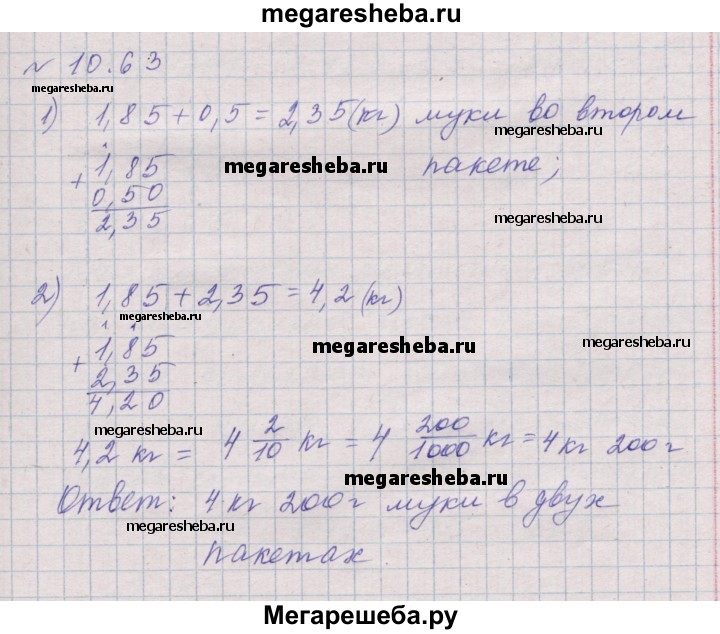 megaresheba.ru
№ 10.63
megaresheba.ru
1) 1,85 + 0,5 = 2,35 (кг) муки во втором
megaresheba.ru
пакете;
+ 1,85
megaresheba.ru
0,50
2,35
megaresheba.ru
2) 1,85 + 2,35 = 4,2 (кг)
megaresheba.ru
+ 1,85
megaresheba.ru
megaresheba.ru
2,35
4,20
megaresheba.ru
4,2 кг = 4 2/10 кг = 4 200/1000 кг = 4 кг 200 г
megaresheba.ru
Ответ: 4 кг 200 г муки в двух
megaresheba.ru
пакетах
Мегарешеба.ру